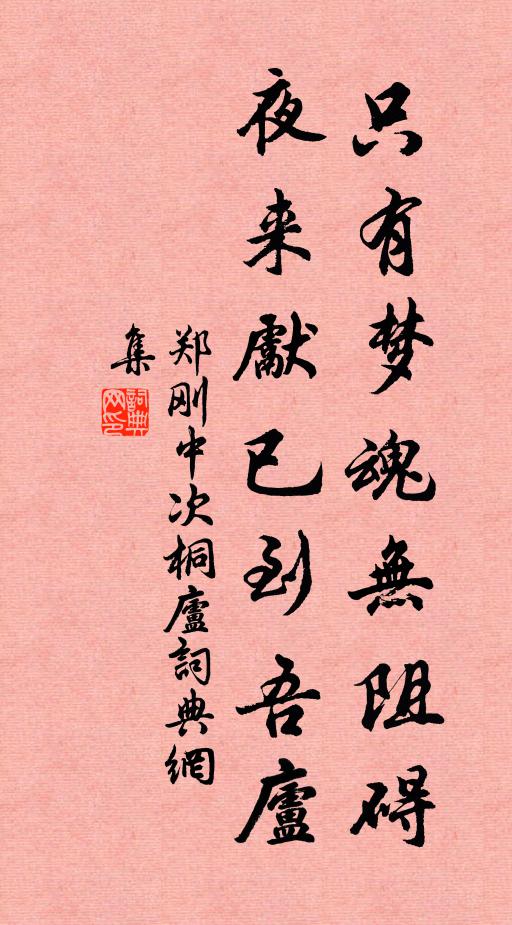 只有梦魂無阻碍
夜来獻已到吾廬
郑刚中次桐廬詞典網
集
詞典网印